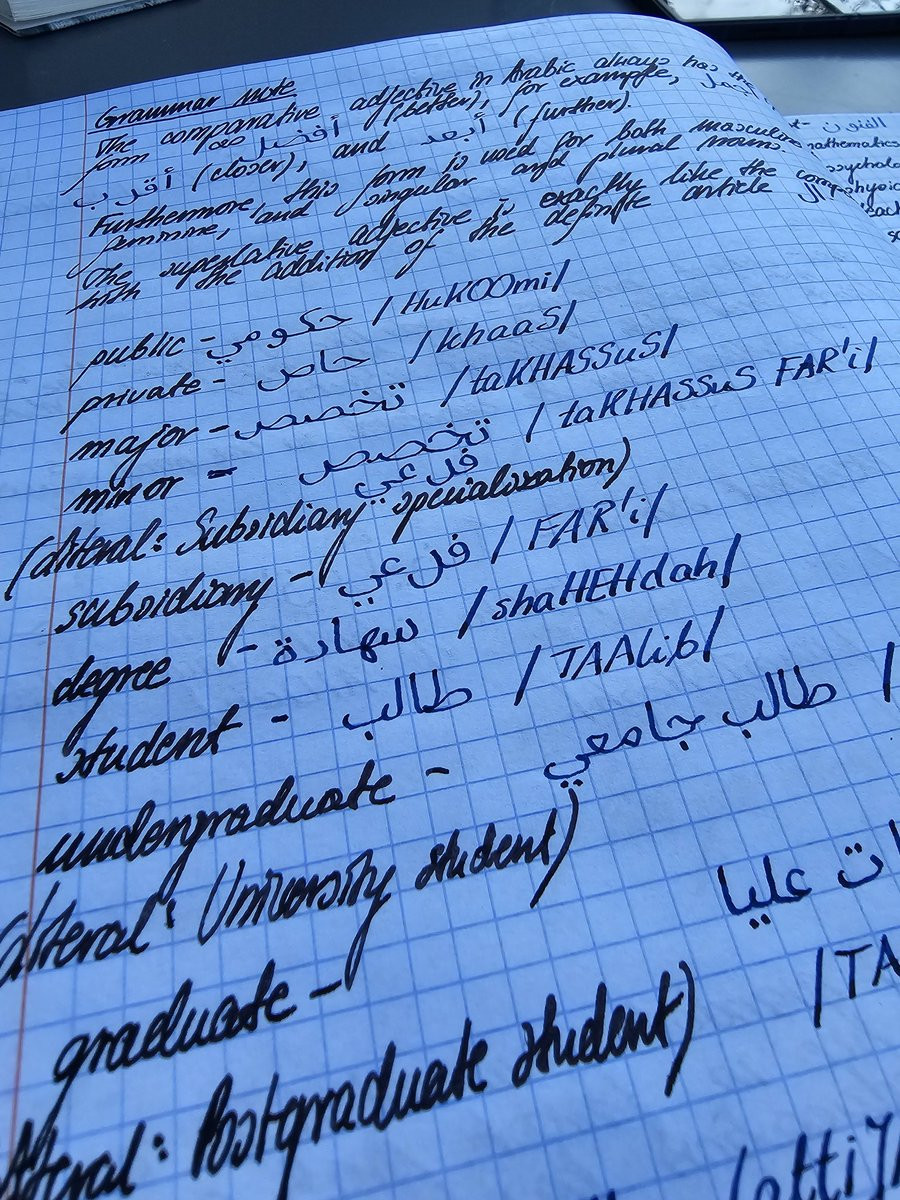 Grammar Note
The comparative adjective in Arabic always has
form أفضل (better), for example,
أقرب (closer), and أبعد (further).
Furthermore, this form is used for both masculine
feminine, and singular and plural nouns.
The superlative adjective is exactly like the
with the addition of the definite article ال
public - حكومي /HuKOOmi/
private - خاص /khaaS/
major - تخصص /taKHASSuS/
minor - تخصص /taKHASSuS FAR'i/
فرعي
(literal: Subsidiary specialization)
subsidiary - فرعي /FAR'i/
degree - سهادة /shaHEHdah/
student - طالب /TAAlib/
undergraduate - طالب جامعي /
(literal: University student)
graduate - ات عليا
/TA
(literal: Postgraduate student)
الفنون
mathematics